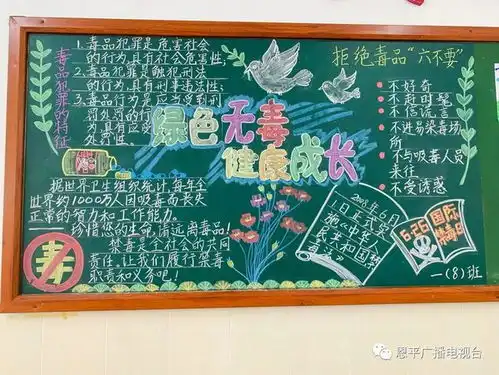 毒品犯罪的特征
1.毒品犯罪是危害社会
的行为,具有社会危害性;
2.毒品犯罪是触犯刑法
的行为,具有刑事违法性;
3.毒品行为是应当受到刑
罚处罚的行
为,具有应受
处罚性。
绿色无毒
健康成长
拒绝毒品“六不要”
不好奇
不赶时髦
不信谎言
不进易染毒场
所
不与吸毒人员
来往
不受诱惑
据世界卫生组织统计,每年全
世界约1000万人因吸毒而丧失
正常的智力和工作能力。
珍惜您的生命,请远离毒品!
禁毒是个社会的共同
责任,让我们履行禁毒
职责和义务吧!
毒
2008年6月
1日正式实
施《中华人
民共和国禁
毒法》
6.26国际
禁毒日
一(8)班
恩平广播电视台